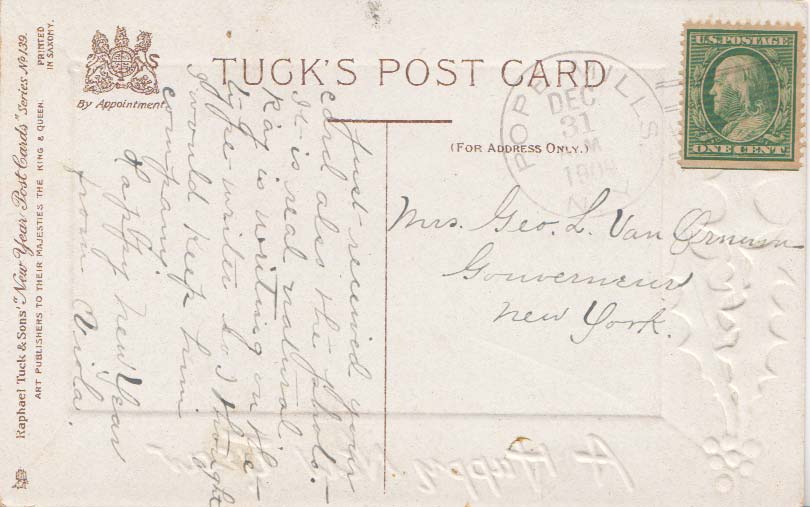 TUCK'S POST CARD
By Appointment.
(FOR ADDRESS ONLY.)
U.S. POSTAGE
ONE CENT
POPE MILLS
DEC
31
M
N.Y.
Mrs. Geo. L. Van Ornum
Gouverneur
New York.
Just received your
card also the photo.
It is real natural
Ray is writing on the
type writer so I thought
I would keep him
company.
Happy New Year
from Viola.
Raphael Tuck & Sons' "New Year Post Cards" Series No 139.
ART PUBLISHERS TO THEIR MAJESTIES THE KING & QUEEN.
PRINTED
IN SAXONY.
A Happy New Year